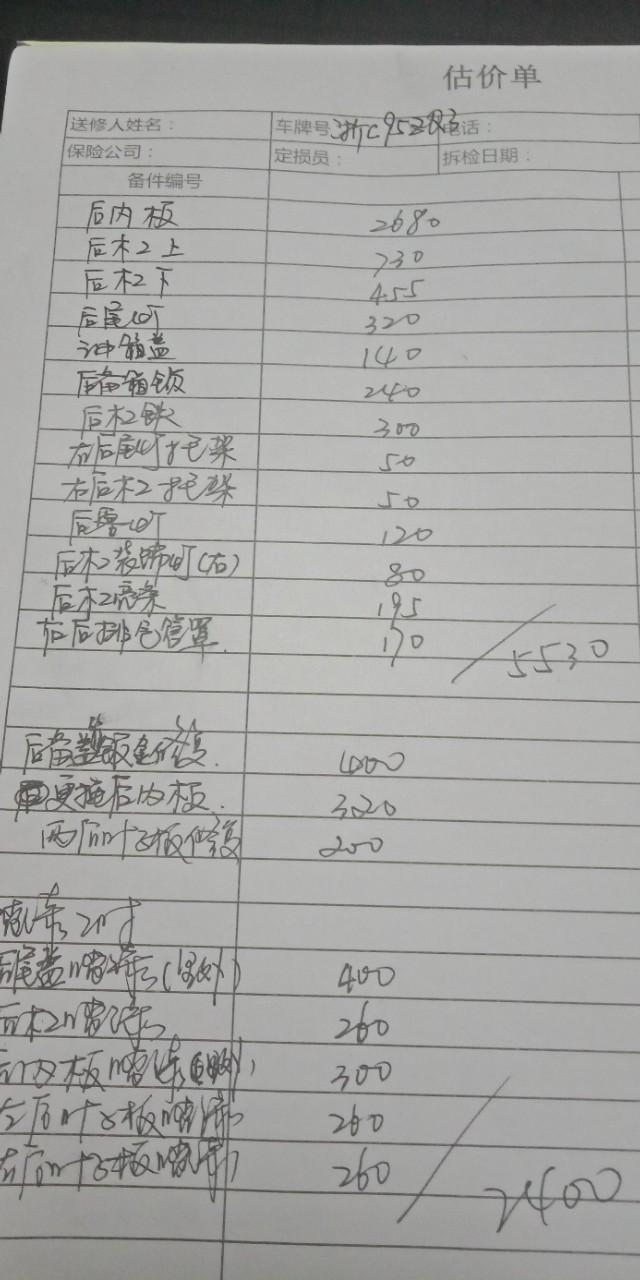 估价单
送修人姓名： 车牌号 浙C95 电话：
保险公司： 定损员： 拆检日期：
备件编号
后内板 2680
后木2上 730
后木2下 455
后尾灯 320
油箱盖 140
后备箱锁 240
后木2铁 300
右后尾灯托架 50
右后木2托架 50
后雾灯 120
后木2装饰灯(右) 80
后木2亮条 195
右后排气管罩 170
5530
后备盖钣金修复 400
更换后内板 320
两后叶子板修复 200
喷漆
后尾盖喷漆(内外) 400
后木2喷漆 260
后内板喷漆 300
左后叶子板喷漆 260
右后叶子板喷漆 260
2400